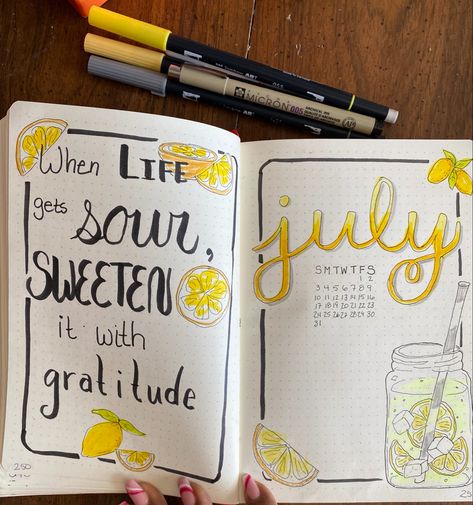 When LIFE
gets sour,
SWEETEN
it with
gratitude
250
july
S M T W T F S
1 2
3 4 5 6 7 8 9
10 11 12 13 14 15 16
17 18 19 20 21 22 23
24 25 26 27 28 29 30
31
MICRON 005